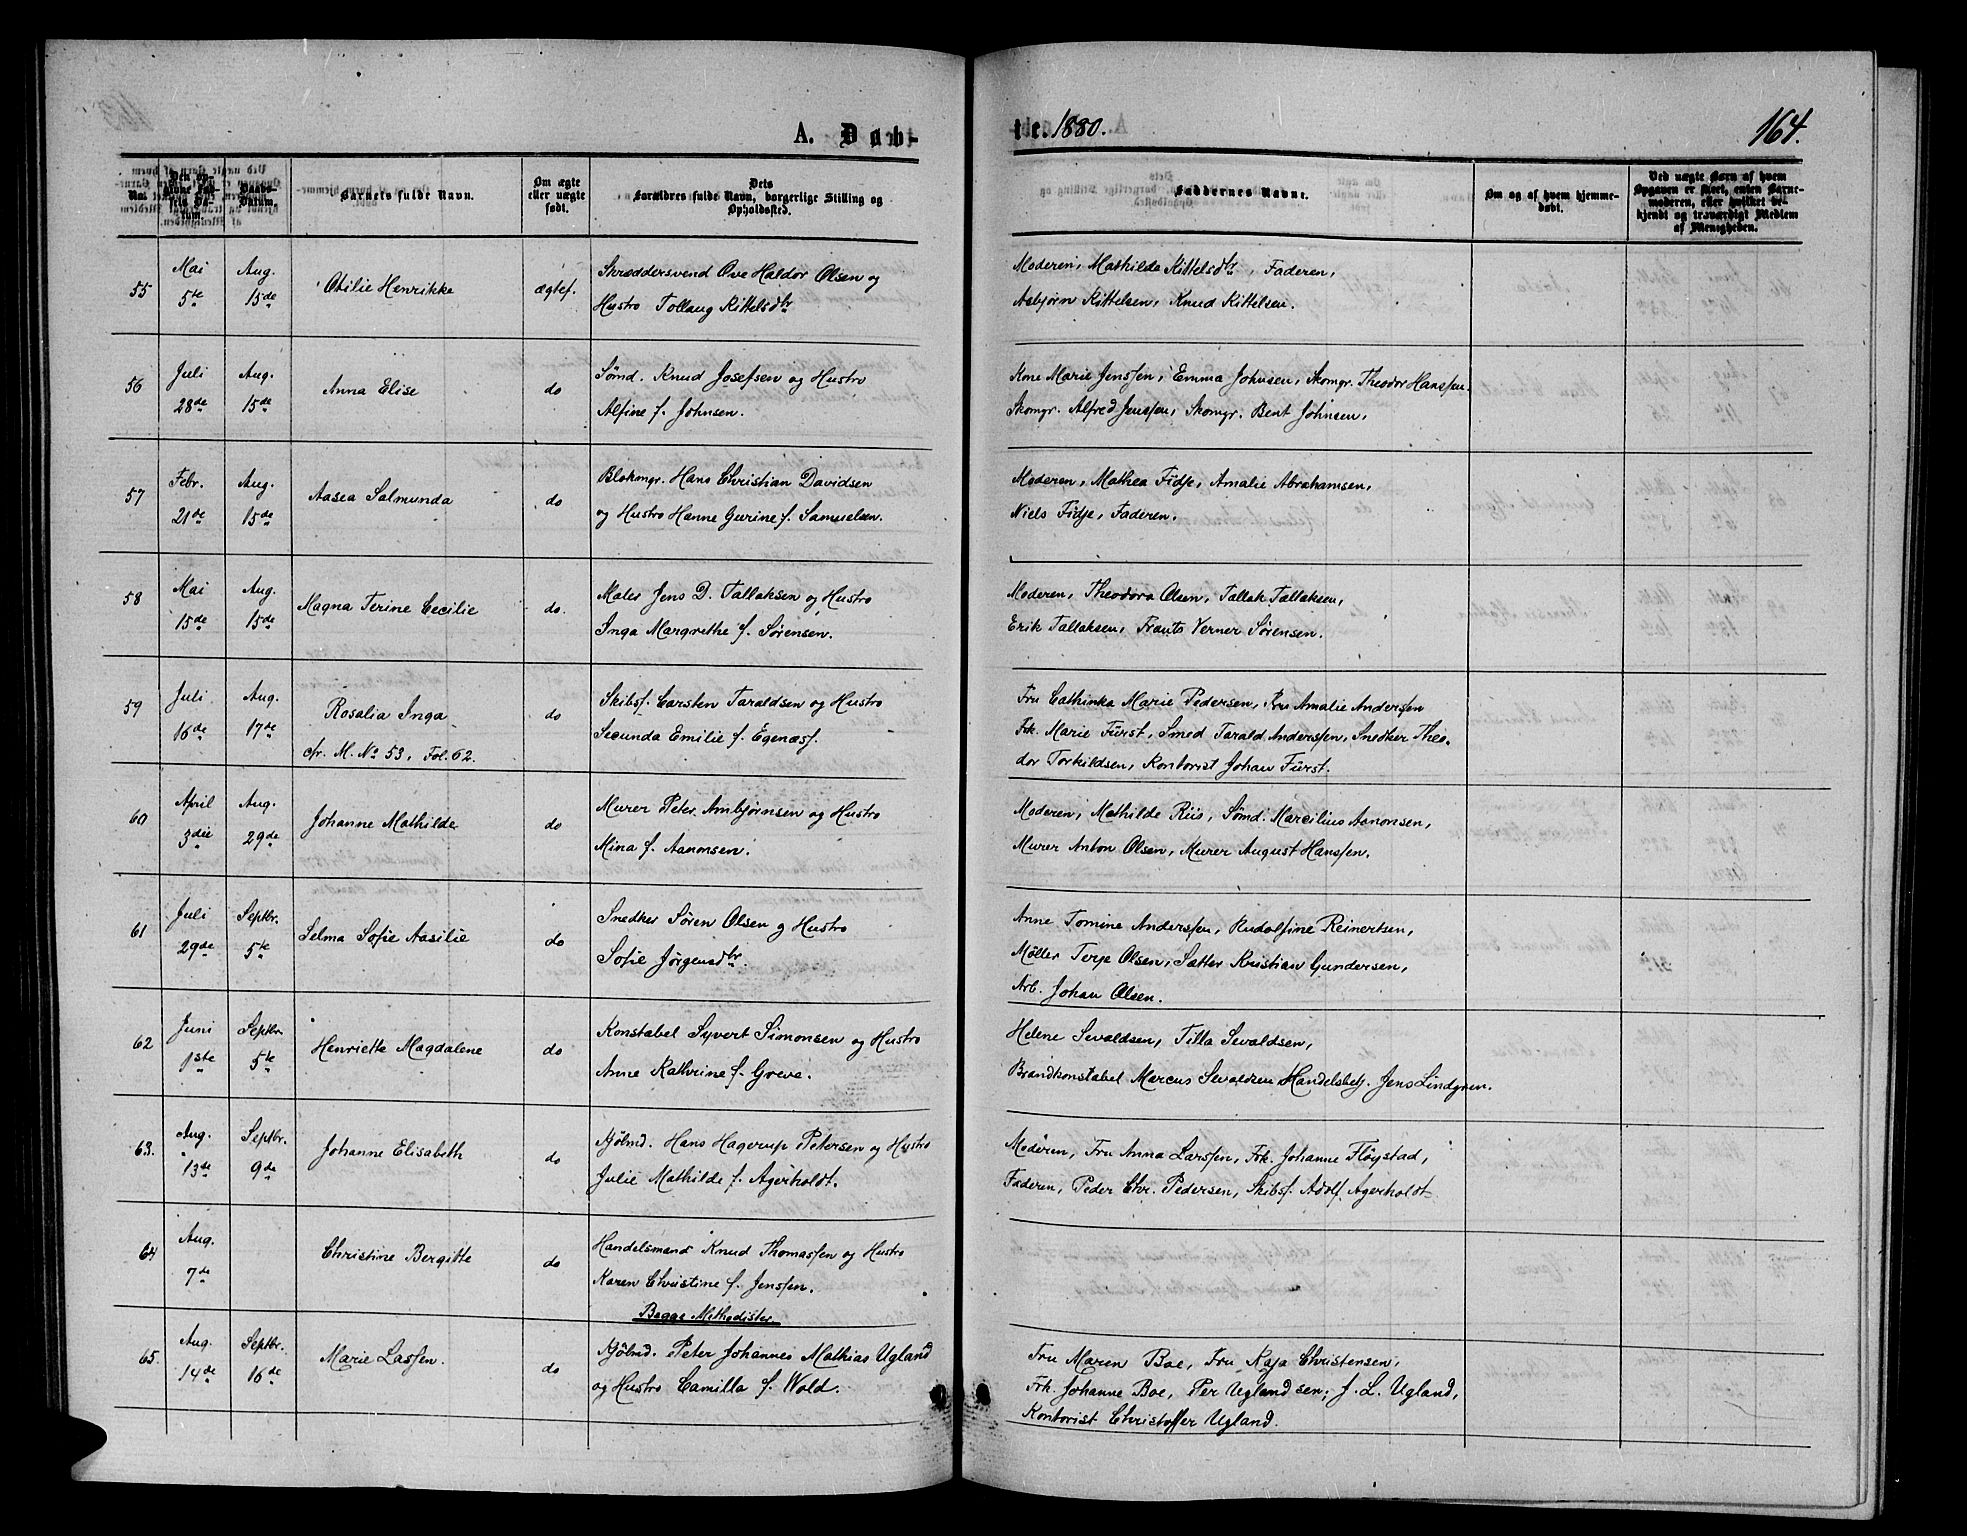 A. Døb-
te. 1880.
164.
No.
Den op-
givne Fød-
sels Da-
tum.
Daabs-
Datum.
Barnets fulde Navn.
Om ægte
eller uægte
født.
Dets
Forældres fulde Navn, borgerlige Stilling og
Opholdssted.
Faddernes Navne.
Om og af hvem hjemme-
døbt.
Ved uægte Børn af hvem
Opgaven er skeet, enten Barne-
moderen, eller hvilket be-
kjendt og troværdigt Medlem
af Menigheden.
55
Mai
5te
Aug.
15de
Otilie Henrikke
ægtef.
Skræddersvend Ove Haldor Olsen og
Hustro Tollaug Kittelsdtr
Moderen, Mathilde Kittelsdtr, Faderen,
Asbjørn Kittelsen, Knud Kittelsen.
56
Juli
28de
Aug.
15de
Anna Elise
do
Sømd. Knud Josefsen og Hustro
Alfine f. Johnsen.
Kone Marie Jenssen, Emma Johnsen, Skomgr. Theodor Hanssen.
Skomgr. Alfred Jenssen, Skomgr. Bent Johnsen.
57
Febr.
21de
Aug.
15de
Aasea Salmunda
do
Blokmgr. Hans Christian Davidsen
og Hustro Hanne Gurine f. Samuelsen.
Moderen, Mathea Fidje, Amalie Abrahamsen,
Niels Fidje, Faderen.
58
Mai
15de
Aug.
15de
Magna Terine Cecilie
do.
Maler Jens D. Tallaksen og Hustro
Inga Margrethe f. Sørensen.
Moderen, Theodora Olsen, Tallak Tallaksen,
Erik Tallaksen, Frants Verner Sørensen.
59
Juli
16de
Aug.
17de
Rosalia Inga
cfr. M. No 53, Fol. 62.
do
Skibsf. Carsten Taraldsen og Hustro
Secunda Emilie f. Egenæss.
Fru Cathinka Marie Pedersen, Fru Amalie Andersen
Frk. Marie Fürst, Smed Tarald Anderssen, Snedker Theo-
dor Torkildsen, Kontorist Johan Fürst.
60
April
3die
Aug.
29de
Johanne Mathilde
do
Murer Peter Ambjørnsen og Hustro
Mina f. Aanonsen.
Moderen, Mathilde Riis, Sømd. Marcilius Aanonsen,
Murer Anton Olsen, Murer August Hanssen.
61
Juli
29de
Septbr.
5te
Selma Sofie Aasilie
do
Snedker Søren Olsen og Hustro
Sofie Jørgensdtr.
Anne Tomine Anderssen, Rudolfine Reinertsen,
Møller Terje Olsen, Sætter Kristian Gundersen,
Arb. Johan Olsen.
62
Juni
1ste
Septbr.
5te
Henriette Magdalene
do
Konstabel Syvert Simonsen og Hustro
Anne Kathrine f. Greve.
Helene Sevaldsen, Tilla Sevaldsen,
Brandkonstabel Marcus Sevaldsen Handelsbetj. Jens Lindgren.
63.
Aug.
13de
Septbr.
9de
Johanne Elisabeth
do
Kjøbmd. Hans Hagerup Petersen og Hustro
Julie Mathilde f. Agerholdt.
Moderen, Fru Anna Larssen, Frk. Johanne Fløystad,
Faderen, Peder Chr. Pedersen, Skibsf. Adolf Agerholdt
64
Aug.
7de
Christine Bergitte
do
Handelsmand Knud Thomassen og Hustro
Karen Christine f. Jenssen.
Begge Methodister
65.
Aug.
14de
Septbr.
16de
Marie Lassen.
do
Kjøbmd. Peter Johannes Mathias Ugland
og Hustro Camilla f. Wold.
Fru Maren Boe, Fru Kaja Christensen,
Frk. Johanne Boe, Per Ugland sen; J. L. Ugland,
Kontorist Christoffer Ugland.